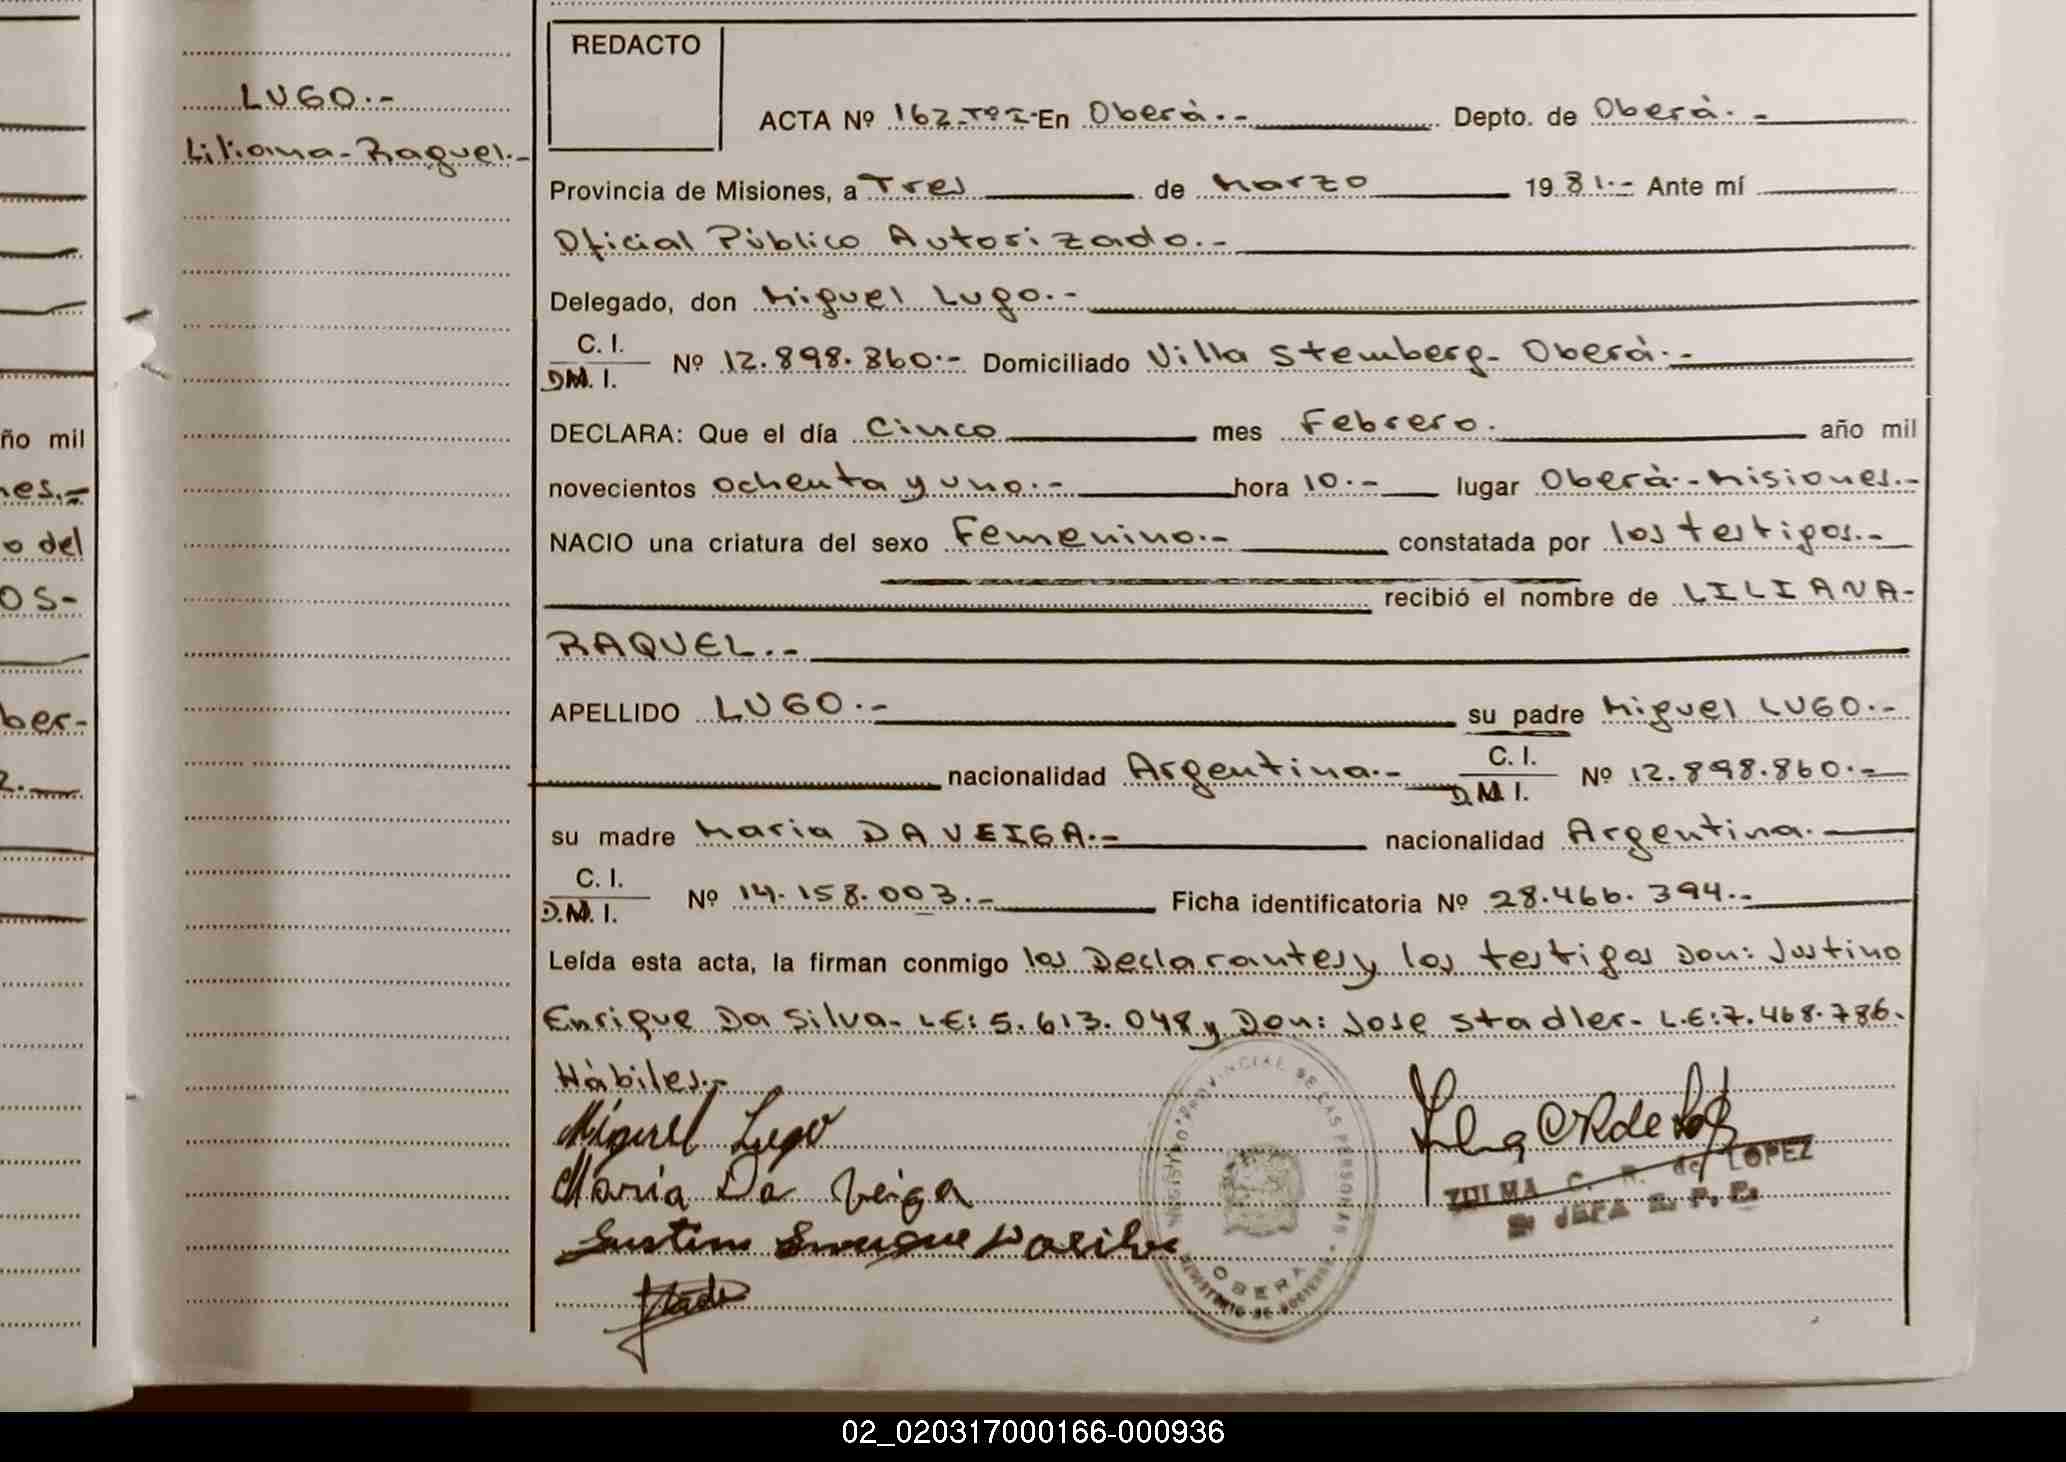 REDACTO
LUGO.-
Liliana-Raquel.-
ACTA Nº 162-Tº I- En Oberá.- Depto. de Oberá.-
Provincia de Misiones, a Tres de Marzo 1981.- Ante mí
Oficial Público Autorizado.-
Delegado, don Miguel Lugo.-
C. I.
D.M. I. Nº 12.898.860.- Domiciliado Villa Stemberg- Oberá.-
DECLARA: Que el día Cinco mes Febrero. año mil
novecientos ochenta y uno.- hora 10.- lugar Oberá.- Misiones.-
NACIO una criatura del sexo Femenino.- constatada por los testigos.-
recibió el nombre de LILIANA-
RAQUEL.-
APELLIDO LUGO.- su padre Miguel LUGO.-
nacionalidad Argentina.- C. I.
D.M. I. Nº 12.898.860.-
su madre Maria DA VEIGA.- nacionalidad Argentina.-
C. I.
D.M. I. Nº 14.158.003.- Ficha identificatoria Nº 28.466.394.-
Leída esta acta, la firman conmigo los Declarantes y los testigos Don: Justino
Enrique Da Silva- L.E: 5.613.048 y Don: Jose Stadler- L.E: 7.468.786.
Hábiles.-
Miguel Lugo
Maria Da Veiga
Justino Enrique Dasilva
REGISTRO PROVINCIAL DE LAS PERSONAS
OBERA
MINISTERIO DE GOBIERNO
ZULMA C. R. de LOPEZ
JEFA R. P. P.
ño mil
nes.-
o del
OS-
ber-
2.
02_020317000166-000936